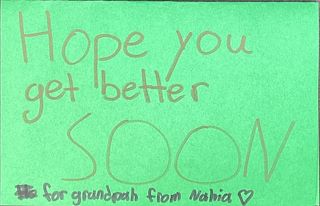 Hope you
get better
SOON
for grandpah from Nahia ♡